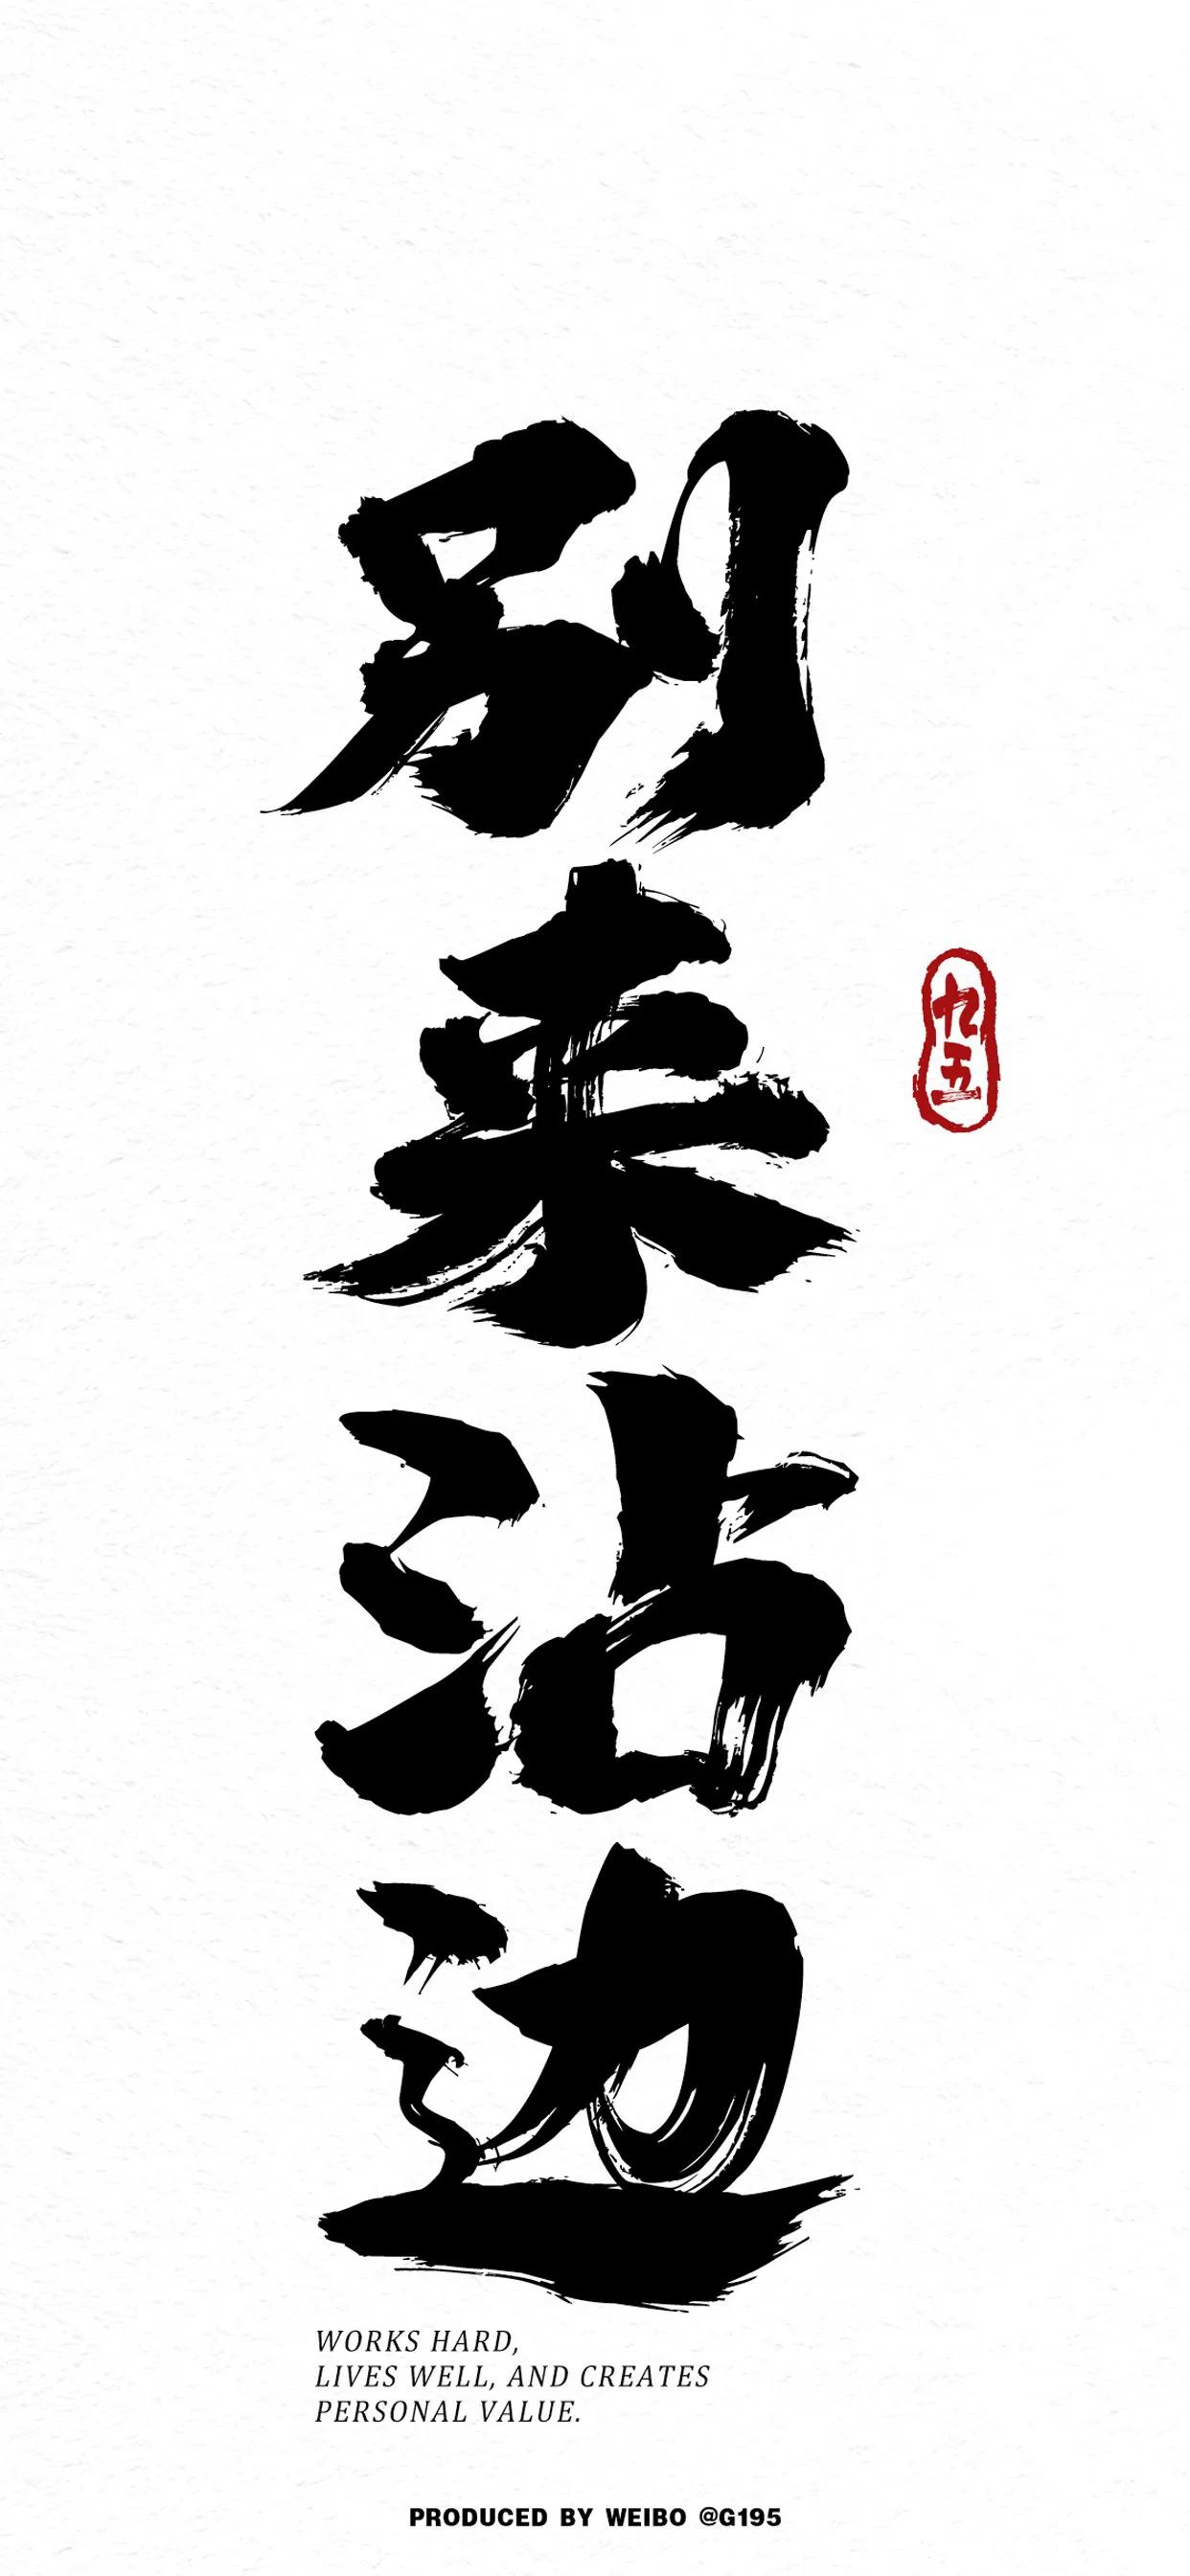 别来沾边
九五
WORKS HARD,
LIVES WELL, AND CREATES
PERSONAL VALUE.
PRODUCED BY WEIBO @G195